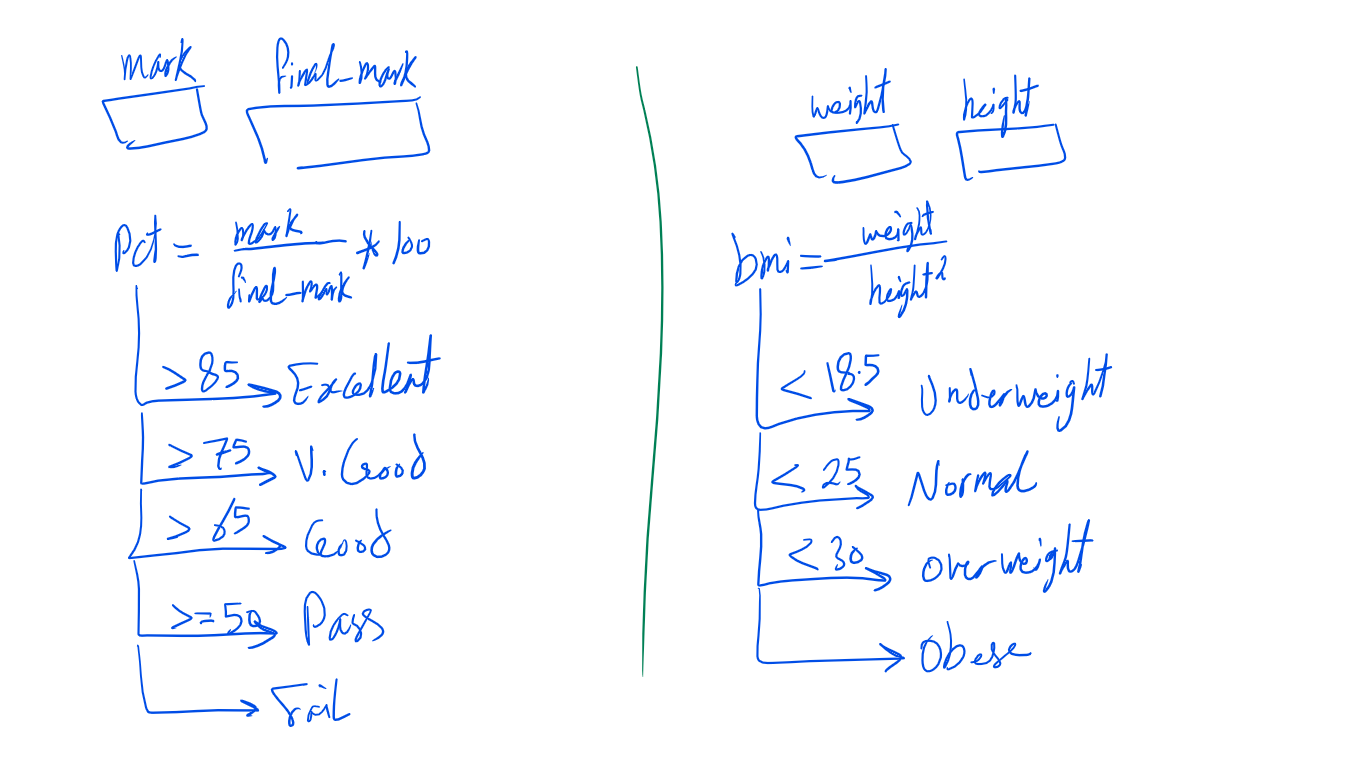 mark final_mark
Pct = mark / final_mark * 100
> 85 Excellent
> 75 V. Good
> 65 Good
>= 50 Pass
Fail
weight height
bmi = weight / height²
< 18.5 Underweight
< 25 Normal
< 30 overweight
Obese